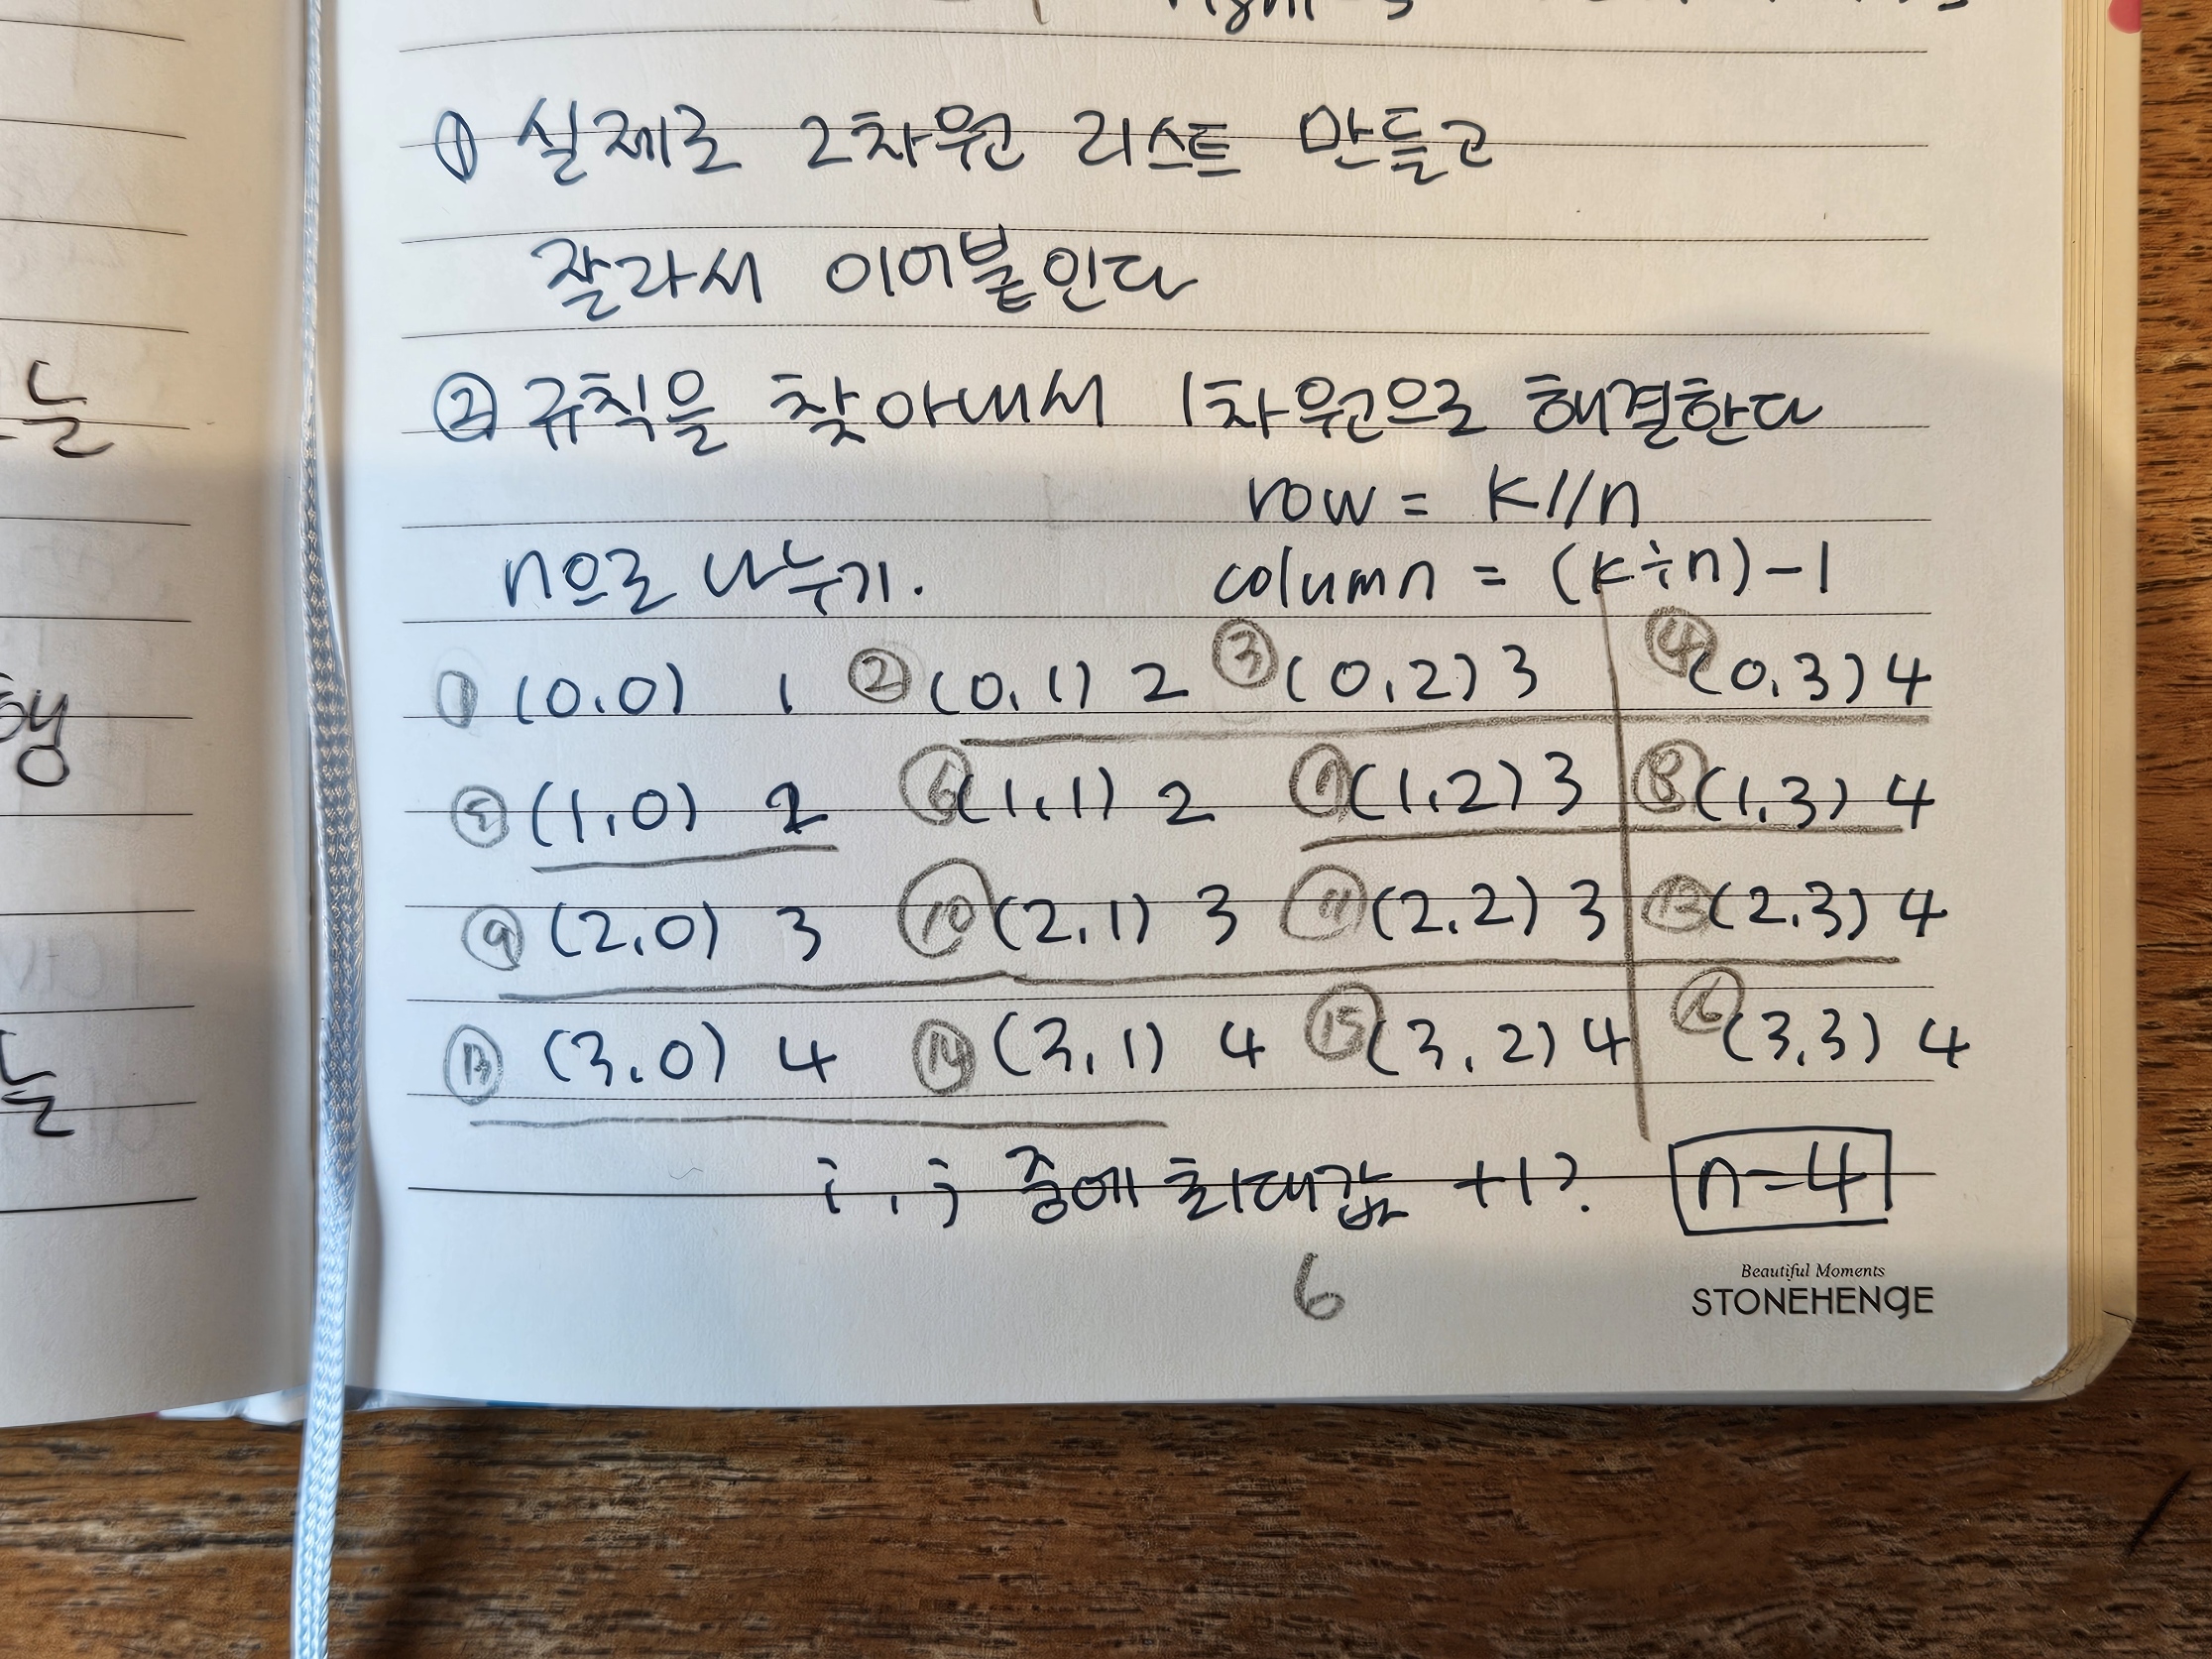 ① 실제로 2차원 리스트 만들고
잘라서 이어붙인다
② 규칙을 찾아내서 1차원으로 해결한다
row = k//n
n으로 나누기. column = (k÷n)-1
① (0,0) 1 ② (0,1) 2 ③ (0,2) 3 ④ (0,3) 4
⑤ (1,0) 2 ⑥ (1,1) 2 ⑦ (1,2) 3 ⑧ (1,3) 4
⑨ (2,0) 3 ⑩ (2,1) 3 ⑪ (2,2) 3 (2,3) 4
⑬ (3,0) 4 ⑭ (3,1) 4 ⑮ (3,2) 4 ⑯ (3,3) 4
i, j 중에 최대값 +1? n=4
6
Beautiful Moments
STONEHENGE
는
행
는